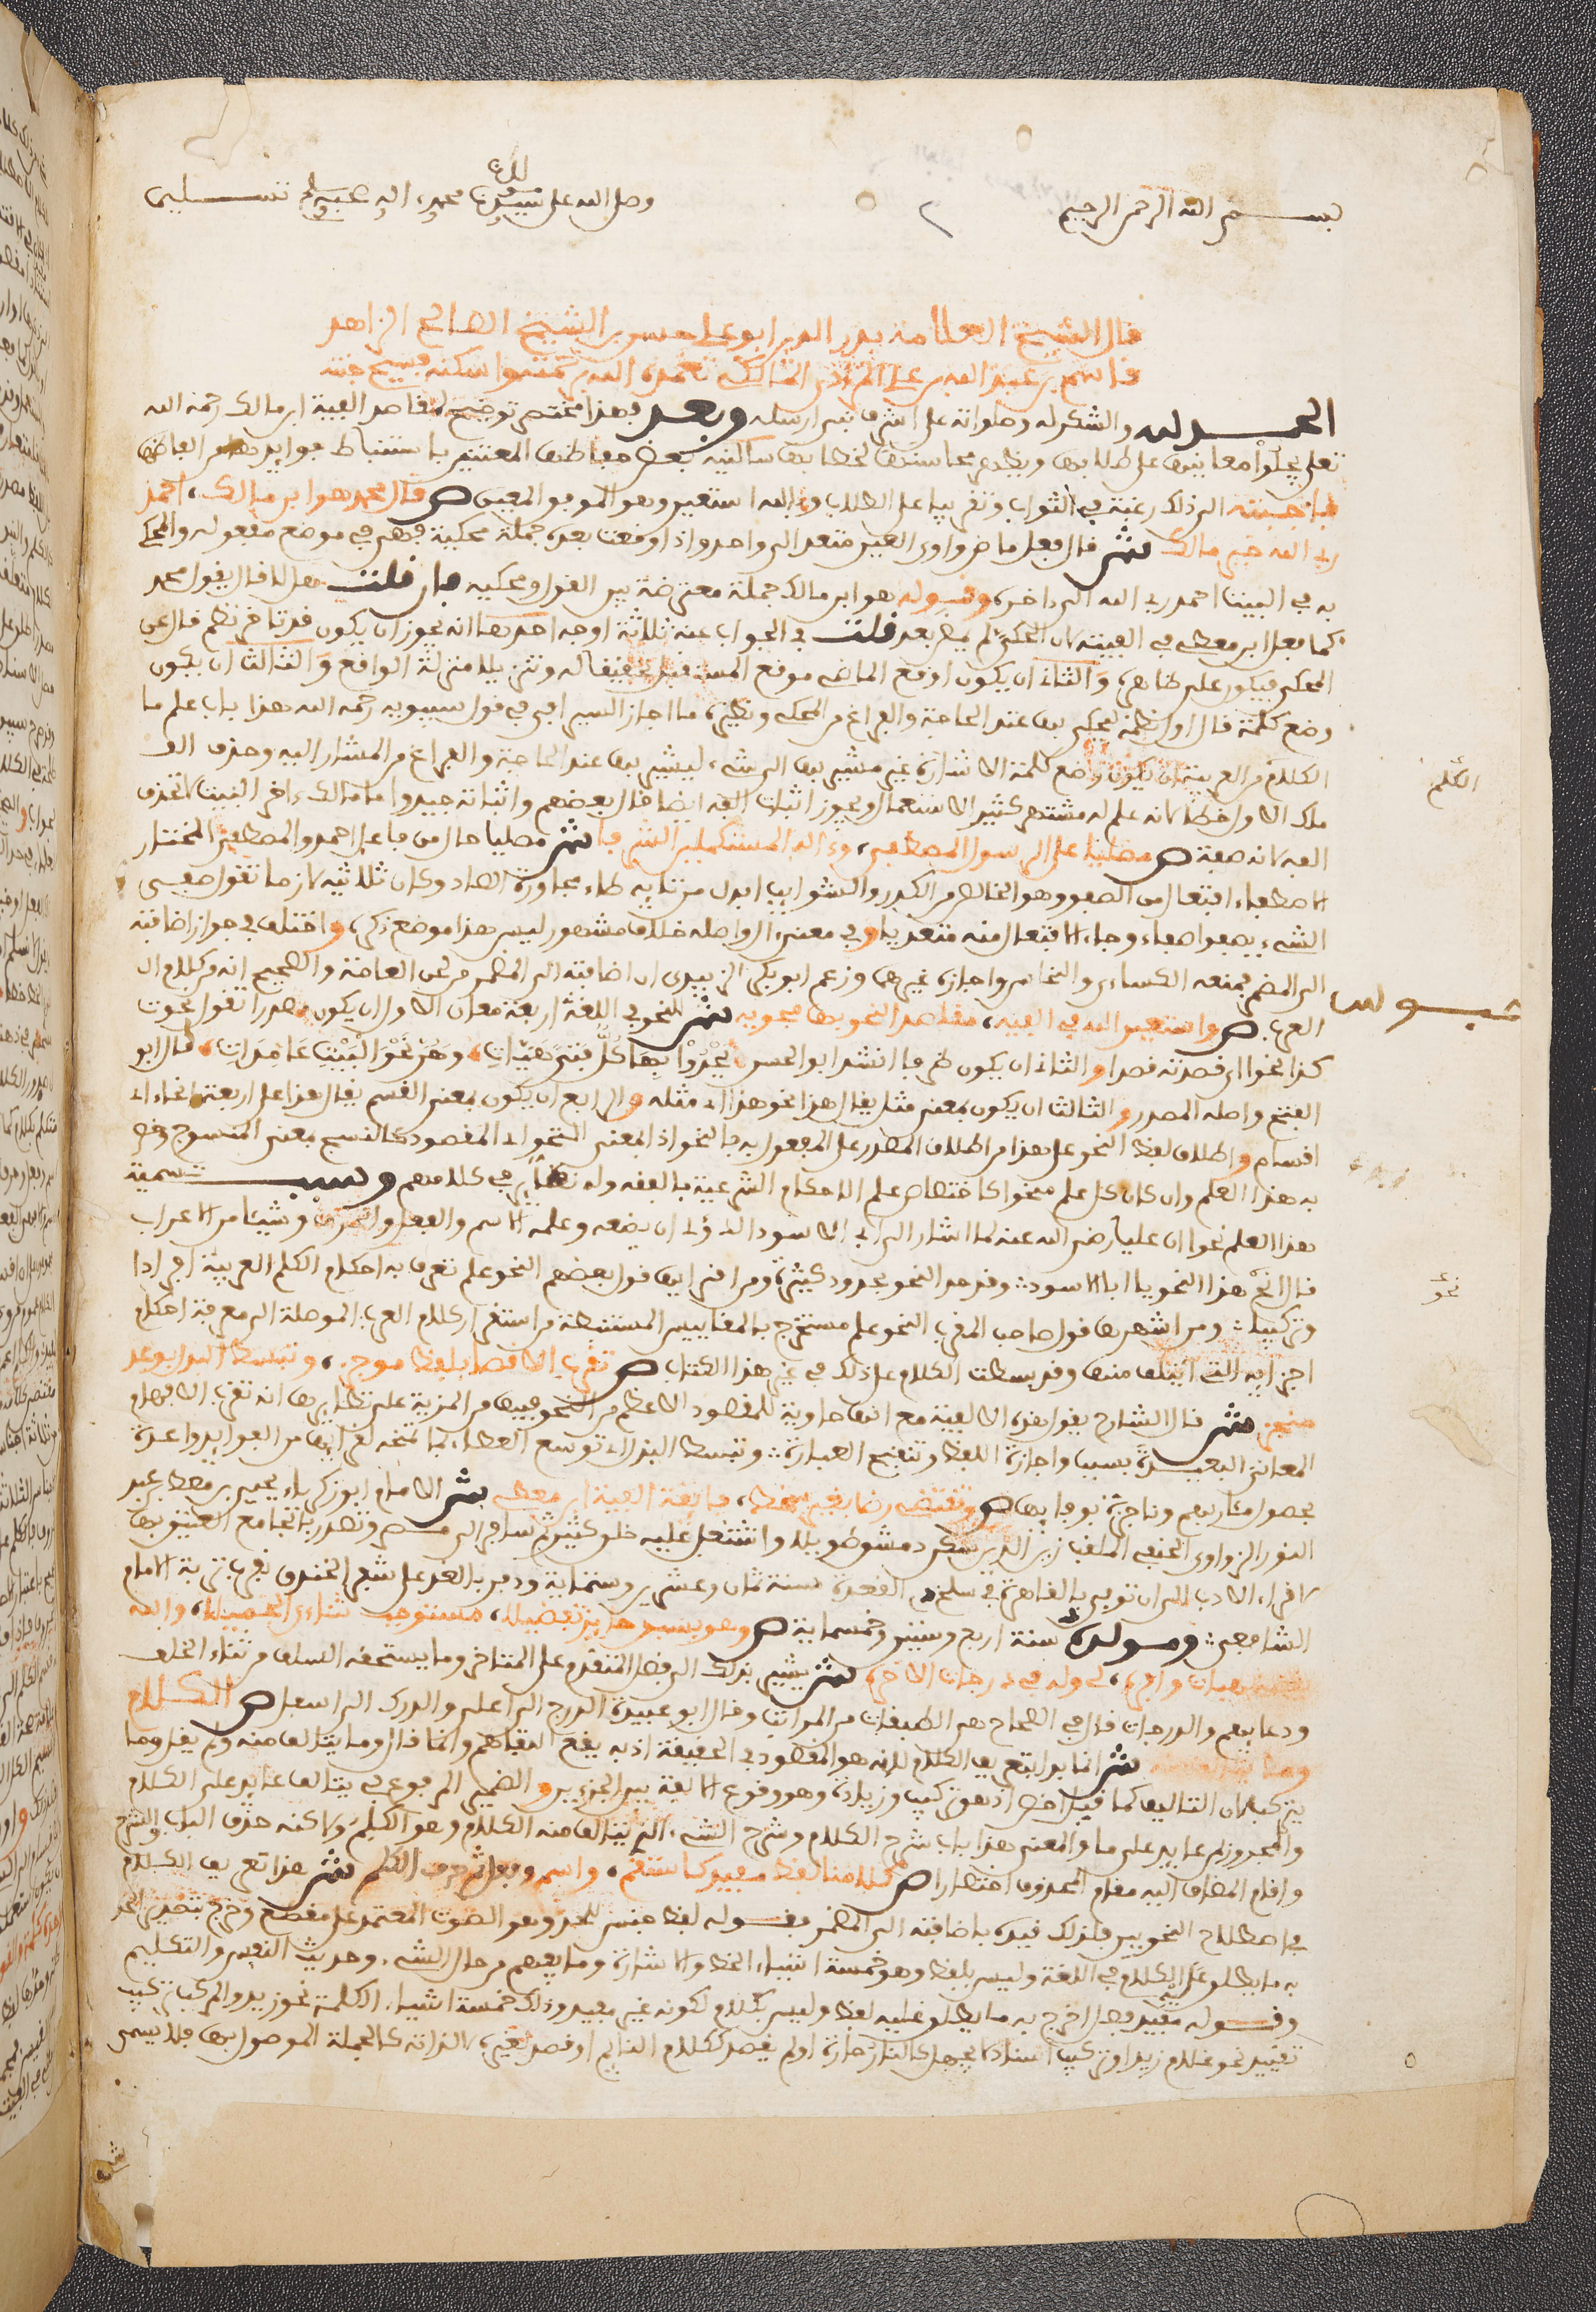 بسم الله الرحمن الرحيم وصلى الله على سيدنا محمد واله وصحبه وسلم تسليما
قال الشيخ العلامة بدر الدين ابو علي حسن بن الشيخ الصالح الزاهد
قاسم بن عبد الله بن علي المرادي المالكي تغمده الله برحمته واسكنه فسيح جنته
الحمد لله والشكر له وصلواته على اشرف نبي ارسله وبعد فهذا مختصر توضيح لمقاصد الفية ابن مالك رحمه الله
تعلى يجلو معانيها على طلابها ويظهر محاسنها لخطابها سالنيه بعض حفاظها المعتنين باستنباط فوائد
فاجبته الى ذلك رغبة في الثواب وتقريبا على الطلاب وبالله استعين وهو الموفق المعين ص قال محمد هو ابن مالك، احمد
ربي الله خير مالك ش قال فعل ماض واوي العين متعد الى واحد واذا وقعت بعده جملة محكية فهي في موضع مفعوله والمحكي
به في البيت احمد ربي الله الى ءاخره وقوله هو ابن مالك جملة معترضة بين القول ومحكيه فان قلت هل لا قال يقول محمد
كما فعل ابن معطي في الفيته لان المحكي لم يمض بعد قلت في الجواب عنه ثلاثة اوجه احدها انه يجوز ان يكون قد تاخر نظم قال عن
المحكي فيكون على ظاهره والثاني ان يكون اوقع الماضي موقع المستقبل تحقيقا له وتنزيلا منزلة الواقع والثالث ان يكون
وضع كلمة قال اول نظمه ليحكي بها عند الحاجة والفراغ من المحكي ونظيره ما اجاز السيرافي في قول سيبويه رحمه الله هذا باب علم ما
الكلم من العربية ان يكون وضع كلمة الاشارة غير مشير بها الى شيء ليشير بها عند الحاجة والفراغ من المشار اليه وحذف الف
ملك الاول خطا لانه علم له مشتهر كثير الاستعمال ويجوز اثبات الفه ايضا قال بعضهم واثباته جيد واما مالك ءاخر البيت لا تحذف
الفه لانه صفة ص مصليا على الرسول المصطفى، وءاله المستكملين الشرفا ش مصليا حال من فاعل احمد والمصطفى المختار
الاصطفاء افتعال من الصفو وهو الخالص من الكدر والشوائب ابدل من تايه طاء لمجاورة الصاد وكان ثلاثيه لازما تقول صفى
الشيء يصفو صفاء وجاء الافتعال منه متعديا وفي معنى ءال واصله خلاف مشهور ليس هذا موضع ذكره واختلف في جواز اضافته
الى المضمر فمنعه الكساءي والنحاس واجازه غيرهما وزعم ابو بكر الزبيدي ان اضافته الى المضمر من لحن العامة والصحيح انه من كلام ال
العرب ص واستعين الله في الفيه، مقاصد النحو بها محويه ش النحو في اللغة اربعة معان الاول ان يكون مصدرا تقول نحوت
كذا نحوا اي قصدته قصدا والثاني ان يكون ظرفا انشد ابو الحسن يحدو بها كل فتى هيات، وهن نحو البيت عامدات، قال ابو
الفتح واصله المصدر والثالث ان يكون بمعنى مثل يقال هذا نحو هذا اي مثله والرابع ان يكون بمعنى القسم يقال هذا على اربعة انحاء اي
اقسام واطلاق لفظ النحو على هذا من اطلاق المصدر على المفعول به فالنحو اذا بمعنى المنحو اي المقصود كالنسج بمعنى المنسوج وخص
به هذا العلم وان كان كل علم منحوا كاختصاص علم الاحكام الشرعية بالفقه وله نظائر في كلامهم وسبب تسمية
هذا العلم نحوا ان عليا رضي الله عنه لما اشار الى ابي الاسود الدؤلي ان يضعه وعلمه الاسم والفعل والحرف وشيئا من الاعراب
قال انح هذا النحو يا ابا الاسود وقد حد النحو بحدود كثيرة ومن اقربها قول بعضهم النحو علم تعرف به احكام الكلم العربية افرادا
وتركيبا ومن اشهرها قول صاحب المقرب النحو علم مستخرج بالمقاييس المستنبطة من استقراء كلام العرب الموصلة الى معرفة احكام
اجزايه التي ايتلف منها وقد بسطت الكلام على ذلك في غير هذا الكتاب ص تقرب الاقصى بلفظ موجز، وتبسط البذل بوعد
منجز ش قال الشارح يقول هذه الالفية مع انها حاوية للمقصود الاعظم من النحو فيها من المزية على نظائرها انه تقرب الافهام
المعاني البعيدة بسبب وجازة اللفظ وتنقيح العبارة وتبسط البذل اي توسع العطاء بما تمنحه لقرائها من الفوائد واعدة
بحصول مئاربهم وناجزة بوفايها ص وتقتضي رضا بغير سخط، فايقة الفية ابن معطي ش الامام ابو زكرياء يحيى بن معط بن عبد
النور الزواوي الحنفي الملقب زين الدين سكن دمشق طويلا واشتغل عليه خلق كثير ثم سافر الى مصر وتصدر بالجامع العتيق بها
لاقراء الادب الى ان توفي بالقاهرة في سلخ ذي القعدة سنة ثمان وعشرين وستماية ودفن بالغد على شفير الخندق بقرب تربة الامام
الشافعي ومولده سنة اربع وستين وخمسماية ص وهو بسبق حائز تفضيلا، مستوجب ثناءي الجميلا، والله
يقضي بهبات وافره، لي وله في درجات الاخره ش يشير بذلك الى فضل المتقدم على المتاخر وما يستحقه السلف من ثناء الخلف
ودعايهم والدرجات قال في الصحاح هي الطبقات من المراتب وقال ابو عبيدة الدرج الى اعلى والدرك الى اسفل ص الكلام
وما يتالف منه ش انما بدا بتعريف الكلام لانه هو المقصود في الحقيقة اذ به يقع التفاهم وانما قال وما يتالف منه ولم يقل وما
يتركب لان التاليف كما قيل اخص اذ هو تركيب وزيادة وهو وقوع الالفة بين الجزءين والضمير المرفوع في يتالف عايد على الكلام
والمجرور بمن عايد على ما والمعنى هذا باب شرح الكلام وشرح الشيء الذي يتالف منه الكلام وهو الكلم ولاكنه حذف الباب والشرح
واقام المضاف اليه مقام المحذوف اختصارا ص كلامنا لفظ مفيد كاستقم، واسم وفعل ثم حرف الكلم ش هذا تعريف الكلام
في اصطلاح النحويين فلذلك قيده باضافته الى المضمر فقوله لفظ جنس للحد وهو الصوت المعتمد على مقطع وخرج بتصدير الحد
به ما يطلق عليه الكلام في اللغة وليس بلفظ وهو خمسة اشياء الخط والاشارة وما يفهم من حال الشيء وحديث النفس والتكليم
وقوله مفيد فصل اخرج به ما يطلق عليه لفظ وليس بكلام لكونه غير مفيد وذلك خمسة اشياء الكلمة نحو زيد والمركب تركيب
تقييد نحو غلام زيد او تركيب اسناد لا يجهل كالنار حارة او لم يقصد ككلام النائم او قصد لغيره لا لذاته كالجملة الموصول بها فلا يسمى
الكلم
نحو